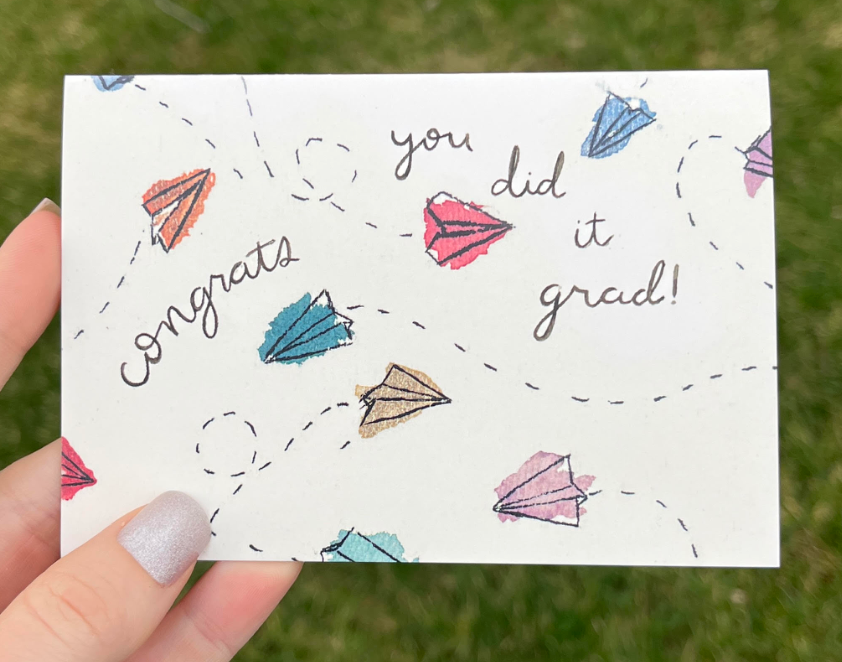 congrats
you
did
it
grad!